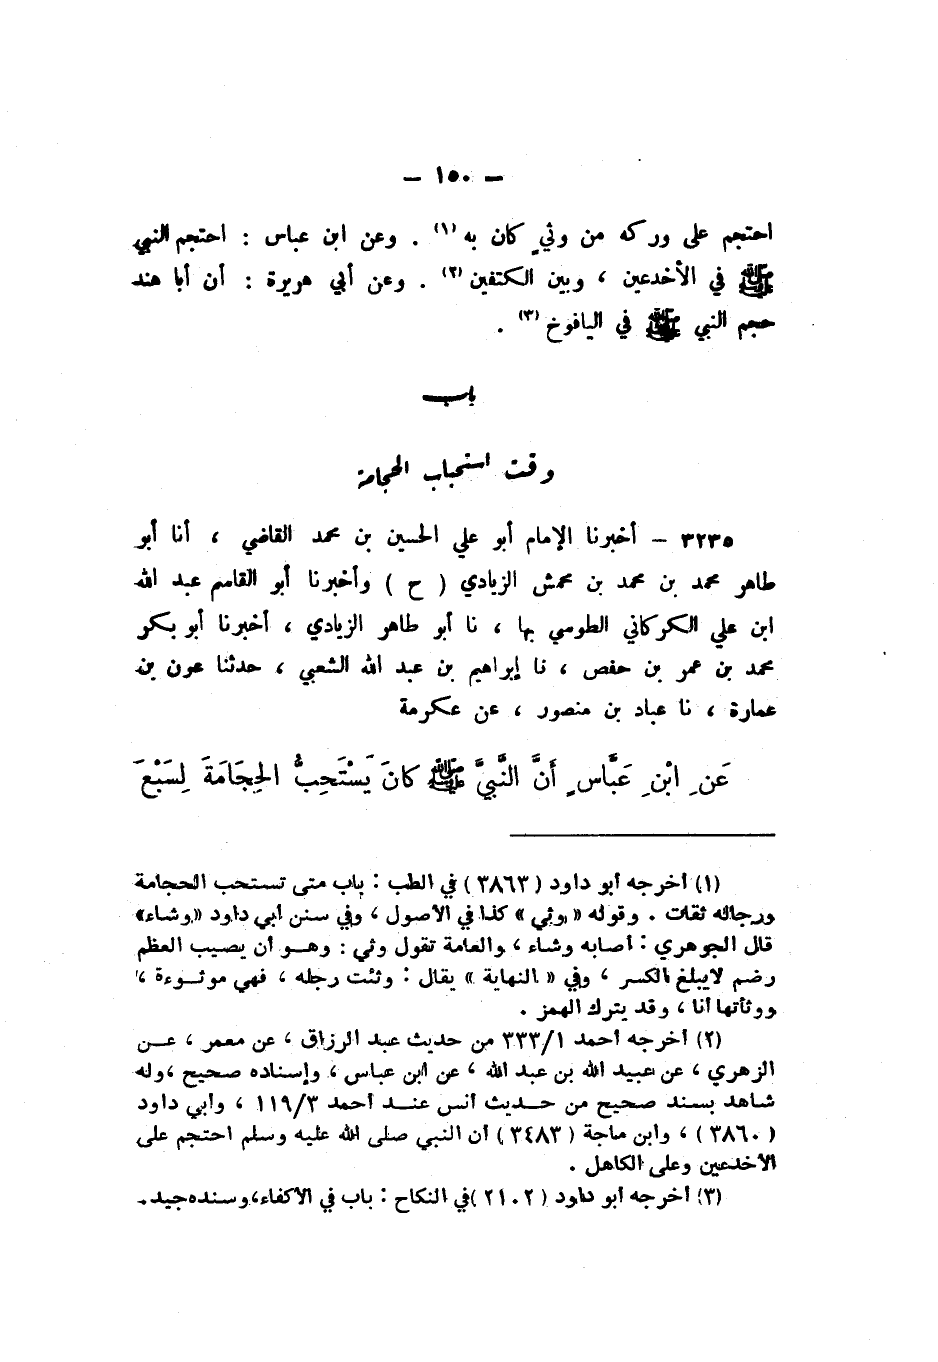 – ١٥٠ –
احتجم على وركه من وثيٍ كان به (١) . وعن ابن عباس : احتجم النبي
ﷺ في الأخدعين ، وبين الكتفين (٢) . وعن أبي هريرة : أن أبا هند
حجم النبي ﷺ في اليافوخ (٣) .
باب
وقت استحباب الحجامة
٣٢٣٥ – أخبرنا الإمام أبو علي الحسين بن محمد القاضي ، أنا أبو
طاهر محمد بن محمد بن محمش الزيادي ( ح ) وأخبرنا أبو القاسم عبد الله
ابن علي الكركاني الطوسي بها ، نا أبو طاهر الزيادي ، أخبرنا أبو بكر
محمد بن عمر بن حفص ، نا إبراهيم بن عبد الله الشعبي ، حدثنا عون بن
عمارة ، نا عباد بن منصور ، عن عكرمة
عَنِ ابْنِ عَبَّاسٍ أَنَّ النَّبِيَّ ﷺ كانَ يَسْتَحِبُّ الحِجَامَةَ لِسَبْعَ
(١) أخرجه أبو داود (٣٨٦٣) في الطب : باب متى تستحب الحجامة
ورجاله ثقات . وقوله « وثي » كذا في الأصول ، وفي سنن أبي داود «وثاء»
قال الجوهري : أصابه وثاء ، والعامة تقول وثي : وهـو أن يصيب العظم
رضم لايبلغ الكسر ، وفي « النهاية » يقال : وثئت رجله ، فهي موثـوءة ،
ووثأتها أنا ، وقد يترك الهمز .
(٢) أخرجه أحمد ٣٣٣/١ من حديث عبد الرزاق ، عن معمر ، عـن
الزهري ، عن عبيد الله بن عبد الله ، عن ابن عباس ، وإسناده صحيح ، وله
شاهد بسند صحيح من حـديث أنس عنـد أحمد ١١٩/٣ ، وأبي داود
(٣٨٦٠) ، وابن ماجة (٣٤٨٣) أن النبي صلى الله عليه وسلم احتجم على
الأخدعين وعلى الكاهل .
(٣) أخرجه أبو داود (٢١٠٢) في النكاح : باب في الأكفاء، وسنده جيد.